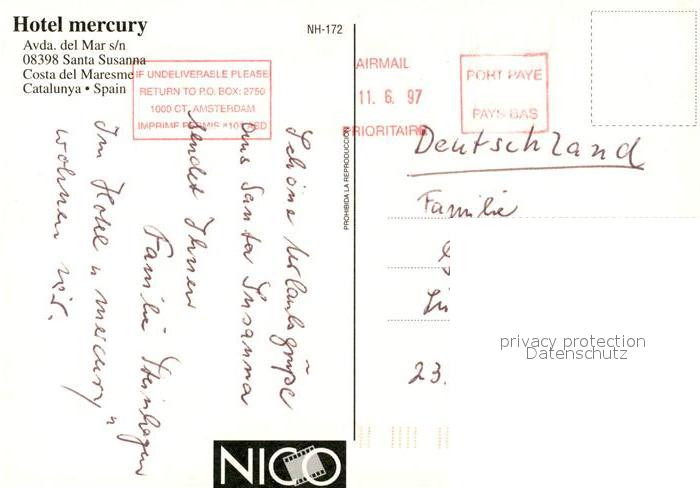 Hotel mercury
Avda. del Mar s/n
08398 Santa Susanna
Costa del Maresme
Catalunya • Spain
NH-172
IF UNDELIVERABLE PLEASE
RETURN TO P.O. BOX: 2750
1000 CT, AMSTERDAM
IMPRIME PERMIS
AIRMAIL
11. 6. 97
PRIORITAIRE
PORT PAYE
PAYS BAS
Schöne Urlaubsgrüße
aus Santa Susanna
sendet Ihnen
Familie
Im Hotel „mercury"
wohnen wir.
PROHIBIDA LA REPRODUCCION
Deutschland
Familie
23.
privacy protection
Datenschutz
NICO